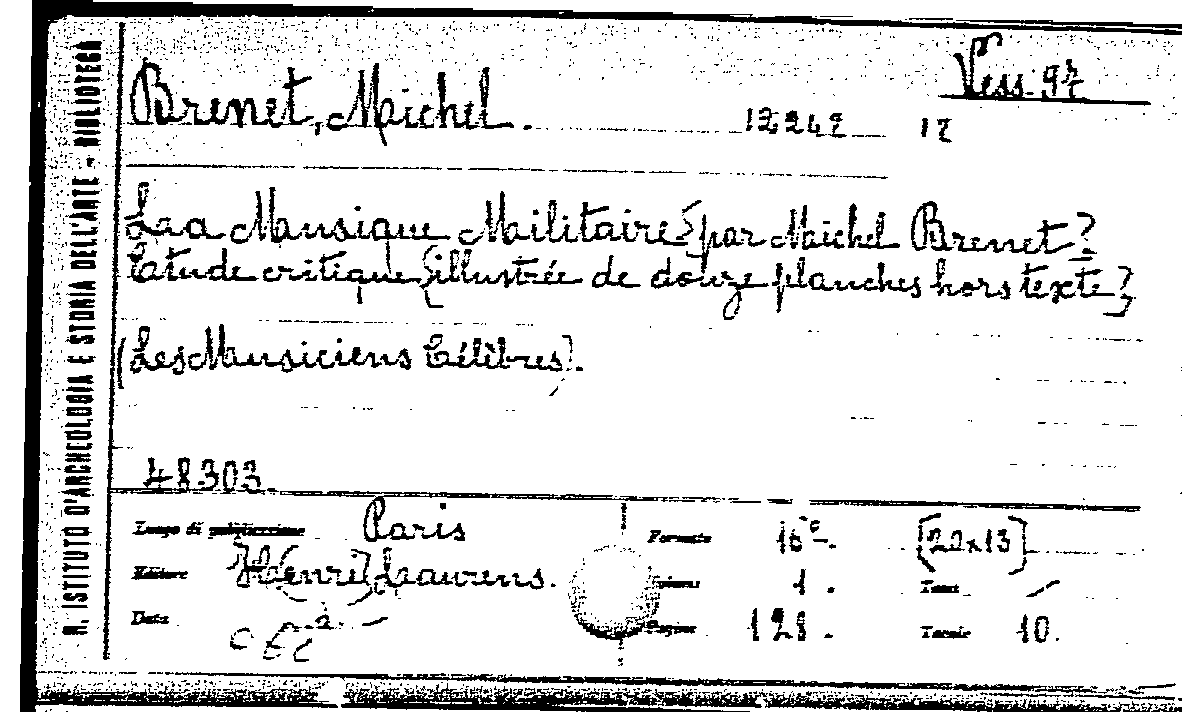 R. ISTITUTO D'ARCHEOLOGIA E STORIA DELL'ARTE - BIBLIOTECA
Vess. 97
Brenet, Michel. 12247 17
La Musique Militaire par Michel Brenet
Etude critique illustrée de douze planches hors texte
(Les Musiciens Célèbres).
48303.
Luogo di pubblicazione Paris Formato 16°-. [20x13]
Editore H[enri] Laurens. Volume 1. Tomi -
Data s. a. - Pagine 128. Tavole 10.